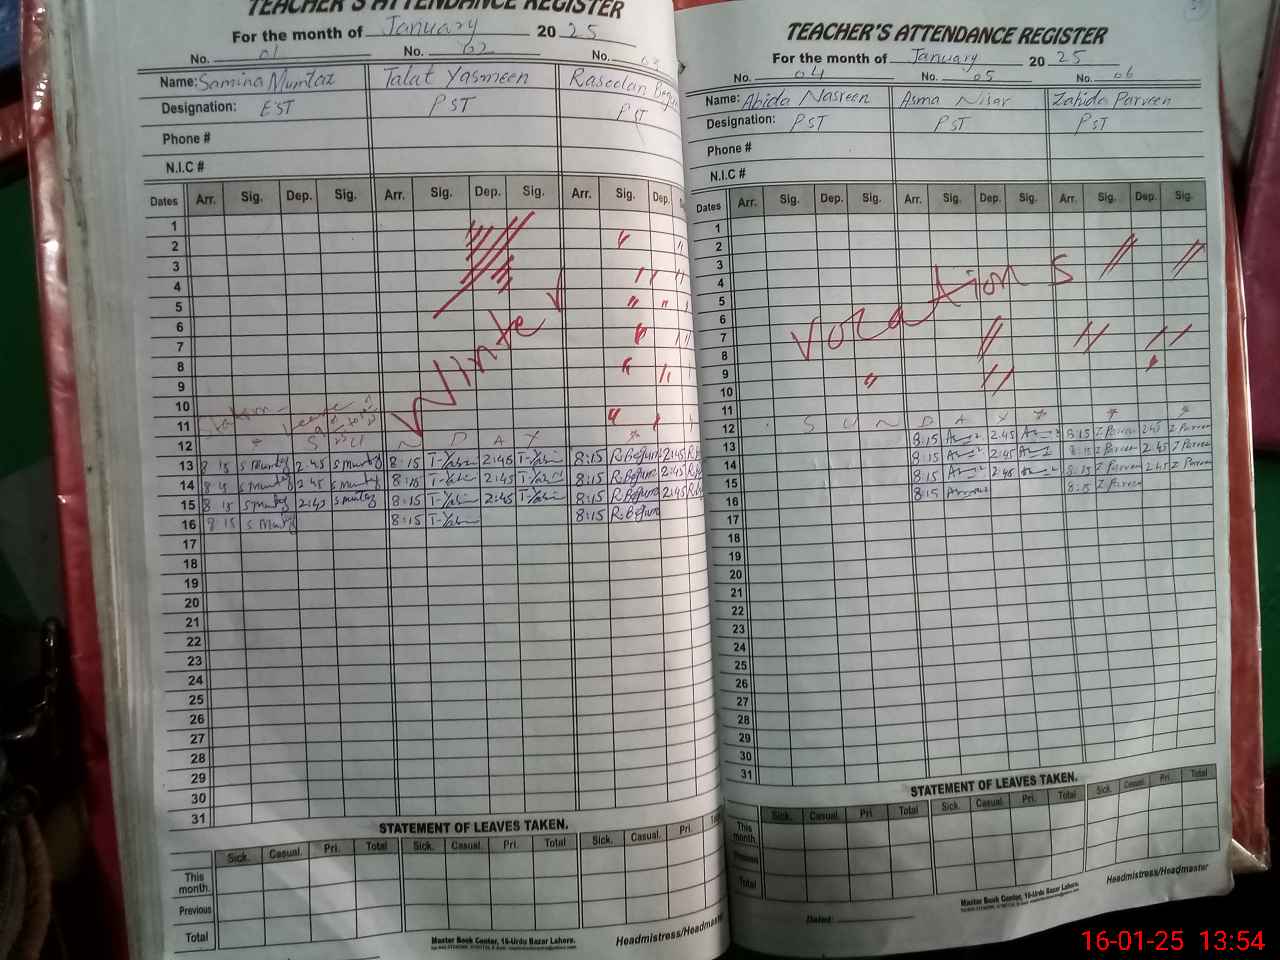 TEACHER'S ATTENDANCE REGISTER
For the month of January 2025
No. 01 No. 02 No. 03
Name: Samina Mumtaz Talat Yasmeen Raseedan Begum
Designation: EST PST PST
Phone #
N.I.C #
Dates Arr. Sig. Dep. Sig. Arr. Sig. Dep. Sig. Arr. Sig. Dep.
1
2
3
4
5
6
7
8
9
10
11
Winter
12 S U N D A Y
13 8 15 S Mumtaz 2:45 S Mumtaz 8:15 T-Yasmin 2:45 T-Yasmin 8:15 R.Begum 2:45
14 S Mumtaz 2:45 S Mumtaz 8:15 T-Yasmin 2:45 T-Yasmin 8:15 R.Begum 2:45
15 8 15 S Mumtaz 2:45 S Mumtaz 8:15 T-Yasmin 2:45 T-Yasmin 8:15 R.Begum 2:45
16 8 15 S Mumtaz 8:15 T-Yasmin 8:15 R.Begum
17
18
19
20
21
22
23
24
25
26
27
28
29
30
31
STATEMENT OF LEAVES TAKEN.
Sick. Casual. Pri. Total Sick. Casual. Pri. Total Sick. Casual. Pri.
This month.
Previous
Total
Master Book Center, 16-Urdu Bazar Lahore.
Headmistress/Headmaster
TEACHER'S ATTENDANCE REGISTER
For the month of January 2025
No. 04 No. 05 No. 06
Name: Abida Nasreen Asma Nisar Zahida Parveen
Designation: PST PST PST
Phone #
N.I.C #
Dates Arr. Sig. Dep. Sig. Arr. Sig. Dep. Sig. Arr. Sig. Dep. Sig.
1
2
3
4
5
6
7
8
9
10
11
Vocations
12 S U N D A Y
13 8:15 2:45 8:15 Z Parveen 2:45 Z Parveen
14 8:15 2:45 8:15 Z Parveen 2:45 Z Parveen
15 8:15 2:45 8:15 Z Parveen 2:45 Z Parveen
16 8:15 8:15 Z Parveen
17
18
19
20
21
22
23
24
25
26
27
28
29
30
31
STATEMENT OF LEAVES TAKEN.
Sick. Casual. Pri. Total Sick. Casual. Pri. Total Sick. Casual. Pri. Total
This month.
Previous
Total
Dated:
Master Book Center, 16-Urdu Bazar Lahore.
Headmistress/Headmaster
16-01-25 13:54